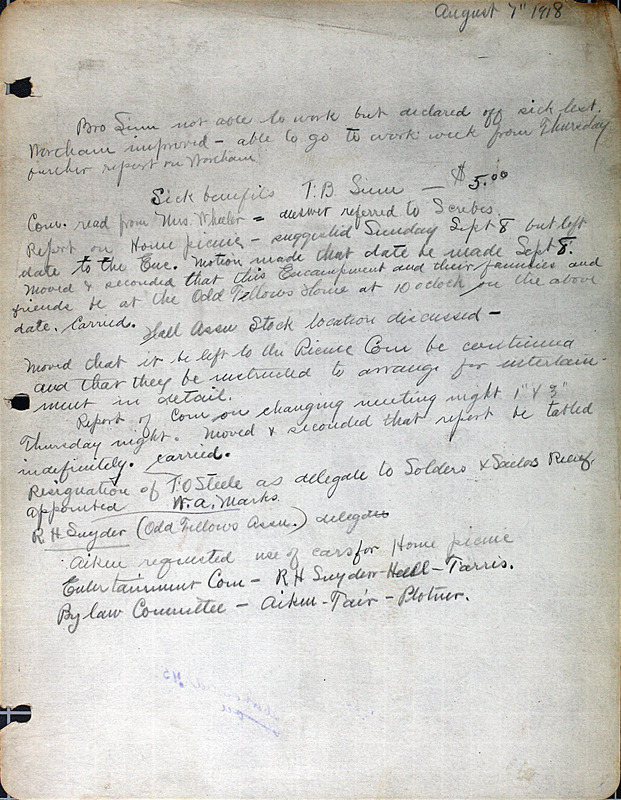 August 7" 1918
Bro Sinn not able to work but declared off sick list.
Worcham improved - able to go to work week from Thursday
further report on Worcham
Sick benefits T.B. Sinn — $5.00
Com. read from Mrs. Whaler = answer referred to Scribes.
Report on Home picnic - suggested Sunday Sept 8 but left
date to the Enc. Motion made that date be made Sept 8.
Moved & seconded that this Encampment and their families and
friends be at the Odd Fellows Home at 10 oclock on the above
date. Carried.
Hall Assn Stock location discussed -
Moved that it be left to the Picnic Com be continued
and that they be instructed to arrange for entertain-
ment in detail.
Report of Com on changing meeting night 1" & 3"
Thursday night. Moved & seconded that report be tabled
indefinitely. Carried.
Resignation of T.O Steele as delegate to Solders & Sailors Relief.
Appointed W.A. Marks
R H Snyder (Odd Fellows Assn.) delegate
Aiken requested use of cars for Home picnic
Entertainment Com - R H Snyder - Hall - Tarris.
By law Committee - Aiken - Tair - Plotner.